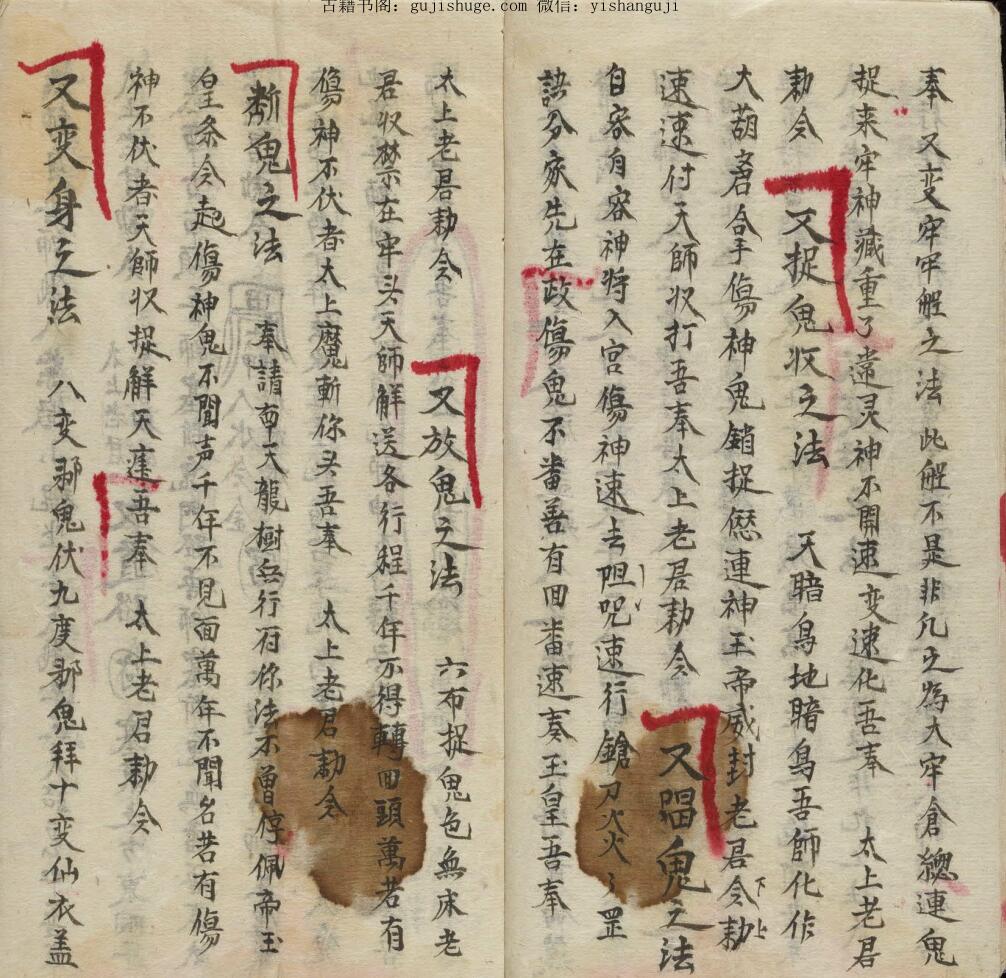 古籍书阁：gujishuge.com 微信：yishanguji
奉 又变牢牢觧之法 此觧不是非凡之為大牢倉總連鬼
捉来牢神藏重了 灵神不開速变速化吾奉 太上老君
勅令 又捉鬼收之法 天暗烏地暗烏吾師化作
大葫 合手傷神鬼鎖捉 連神玉帝威封老君令勅下上
速速付天師收打吾奉太上老君勅令 又唱鬼之法
自容自容神将入宫傷神速去阻咒速行鎗刀火火 罡
訣分家先在政傷鬼不畨善有回畨速奏玉皇吾奉
太上老君勅令 又放鬼之法 六布捉鬼色無床老
君收禁在牢头天師觧送各行程千年不得轉回頭萬若有
傷神不伏者太上魔斬你头吾奉 太上老君勅令
斷鬼之法 奉請 天龍樹 行 你法不曽停佩帝玉
皇条令起傷神鬼不聞声千年不見面萬年不聞名若有傷
神不伏者天師收捉觧天 吾奉 太上老君勅令
又变身之法 八变 鬼伏九度 鬼拜十变仙衣盖